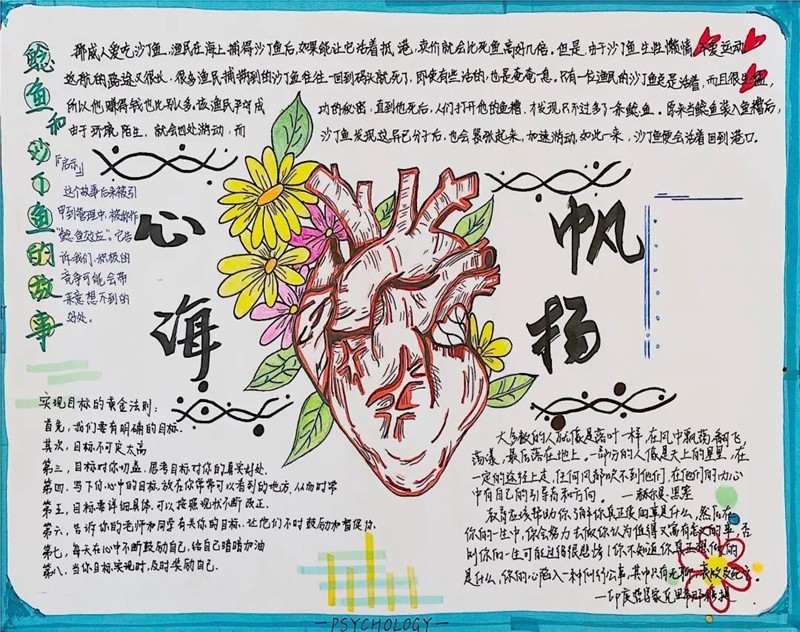 鲶鱼和沙丁鱼的故事
挪威人爱吃沙丁鱼,渔民在海上捕得沙丁鱼后,如果能让它活着抵港,卖价就会比死鱼高好几倍。但是,由于沙丁鱼生性懒惰,不爱运动
返航的路途又很长,很多渔民捕捞到的沙丁鱼往往一回到码头就死了,即使有些活的,也是奄奄一息。只有一位渔民的沙丁鱼总是活着,而且很生猛,
所以他赚得钱也比别人多。该渔民严守成功的秘密,直到他死后,人们打开他的鱼槽,才发现只不过多了一条鲶鱼。原来当鲶鱼装入鱼槽后,
由于环境陌生,就会四处游动,而沙丁鱼发现这异己分子后,也会紧张起来,加速游动,如此一来,沙丁鱼便会活着回到港口。
「启示」
这个故事后来被引
申到管理中,被称作
“鲶鱼效应”。它告
诉我们,积极的
竞争可能会带
来意想不到的
好处。
心海
帆扬
实现目标的黄金法则:
首先,我们要有明确的目标.
其次,目标不可定太高
第三,目标对你的益,思考目标对你的真实好处.
第四,写下你心中的目标,放在你常常可以看到的地方,从而时常
第五,目标要详细具体,可以按照现状不断改正.
第六,告诉你的老师和同学有关你的目标,让他们不时鼓励和督促你.
第七,每天在心中不断鼓励自己,给自己暗暗加油
第八,当你目标实现时,及时奖励自己.
大多数的人就像是落叶一样,在风中飘荡、翻飞,
荡漾,最后落在地上。一部份的人像是天上的星星,在
一定的途径上走,任何风都吹不到他们,在他们的内心
中有自己的引导者和方向。——赫尔曼·黑塞
教育应该帮助你了解你真正想的事是什么,然后在
你的一生中,你会努力去做你认为值得又富有意义的事,否
则你的一生可能过得很悲惨!你不知道你真正想做的
是什么,你的心陷入一种例行公事,其中只有无聊、衰败及死亡.
——印度哲学家克里希那穆提
—PSYCHOLOGY—